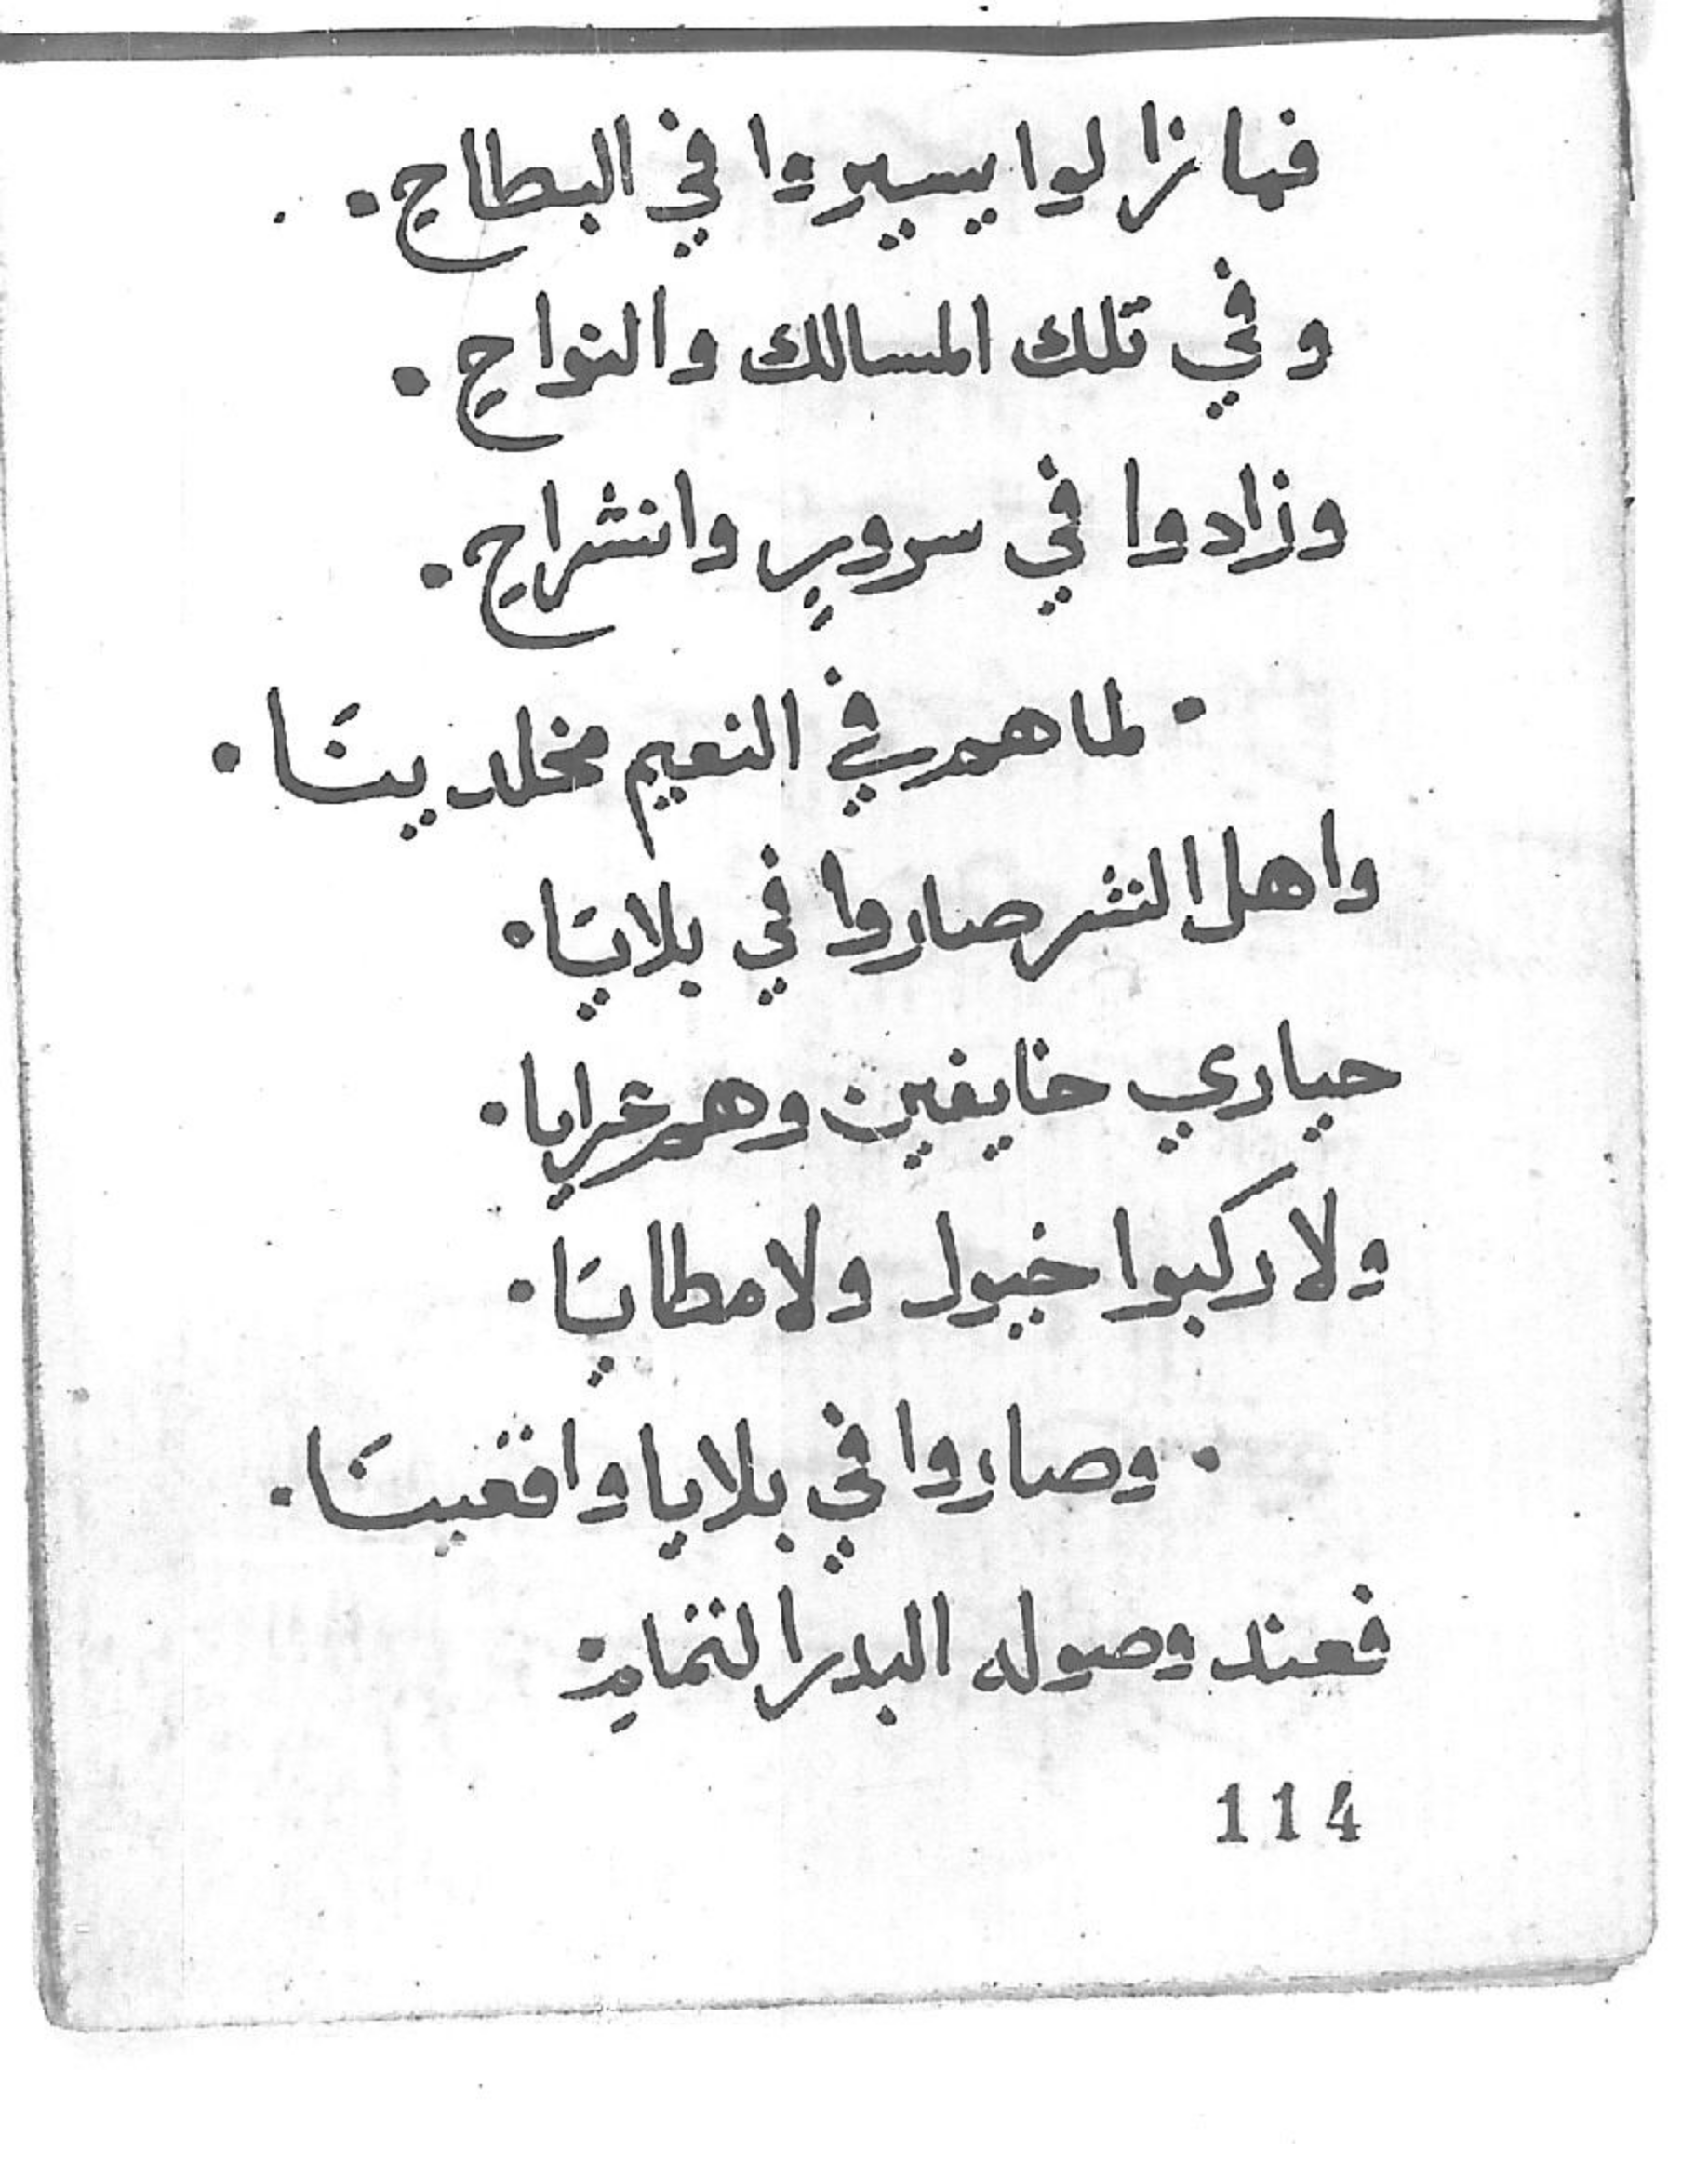 فما زالوا يسيروا في البطاحِ.
وفي تلك المسالك والنواحِ.
وزادوا في سرورٍ وانشراحِ.
. لما هم في النعيم مخلدينَا.
واهل الشر صاروا في بلايَا.
حياري خايفين وهم عرايا.
ولا ركبوا خيول ولا مطايَا.
. وصاروا في بلايا واقعينَا.
فعند وصوله البدر التمامِ
114